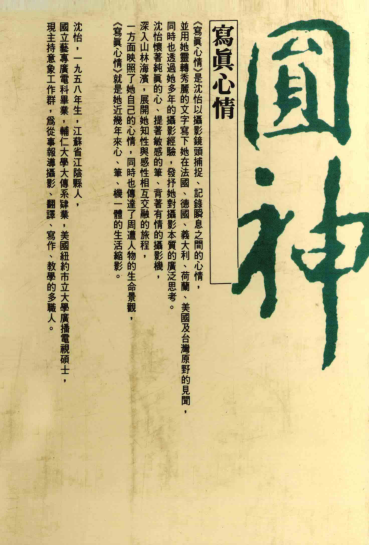 圓神
寫眞心情
《寫眞心情》是沈怡以攝影鏡頭捕捉、記錄瞬息之間的心情，
並用她靈轉秀麗的文字寫下她在法國、德國、義大利、荷蘭、美國及台灣原野的見聞，
同時也透過她多年的攝影經驗，發抒她對攝影本質的廣泛思考。
沈怡懷著純眞的心、提著敏感的筆、背著有情的攝影機，
深入山林海濱，展開她知性與感性相互交融的旅程，
一方面映照了她自己的心情，同時也傳達了周遭人物的生命景觀，
《寫眞心情》就是她近幾年來心、筆、機一體的生活縮影。
沈怡，一九五八年生，江蘇省江陰縣人，
國立藝專廣電科畢業，輔仁大學大傳系肄業，美國紐約市立大學廣播電視碩士，
現主持意象工作群，爲從事報導攝影、翻譯、寫作、教學的多職人。